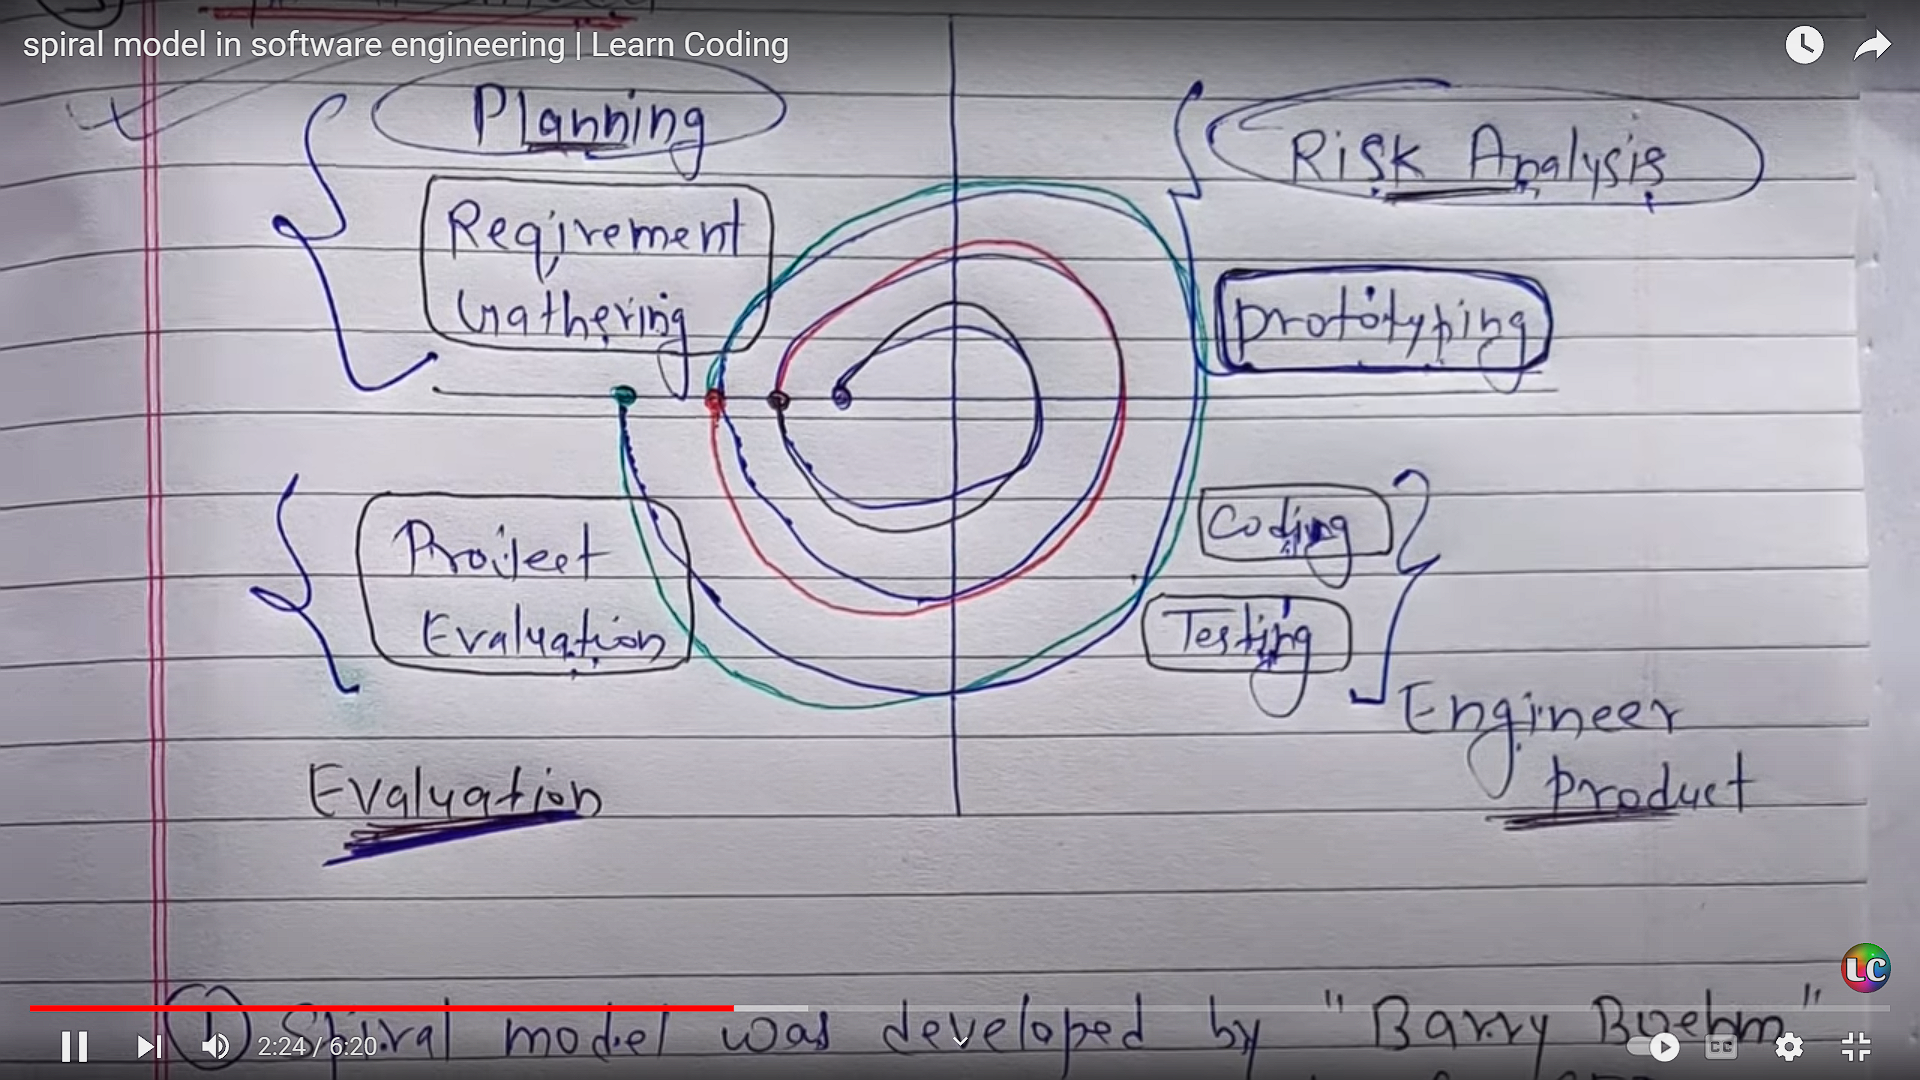 spiral model in software engineering | Learn Coding
Planning
Reqirement
Gathering
Risk Analysis
prototyping
Project
Evaluation
Coding
Testing
Engineer
product
Evaluation
LC
① Spiral model was developed by "Barry Boehm"
2:24 / 6:20
CC